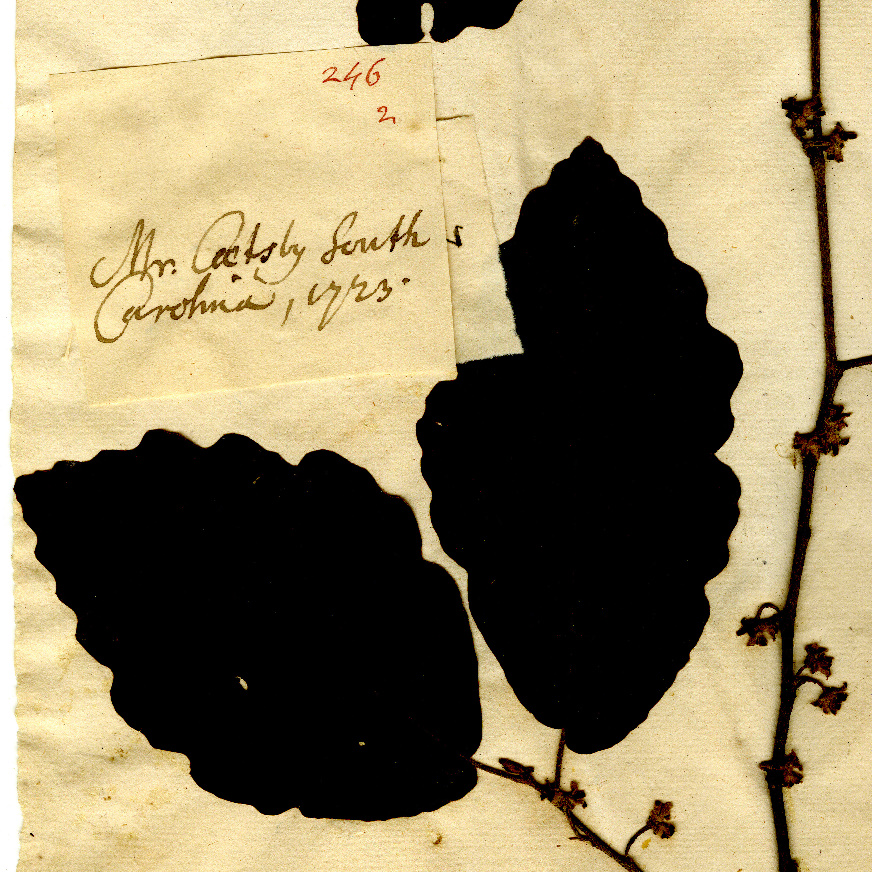 246
2
Mr. Catsby South
Carolina, 1723.